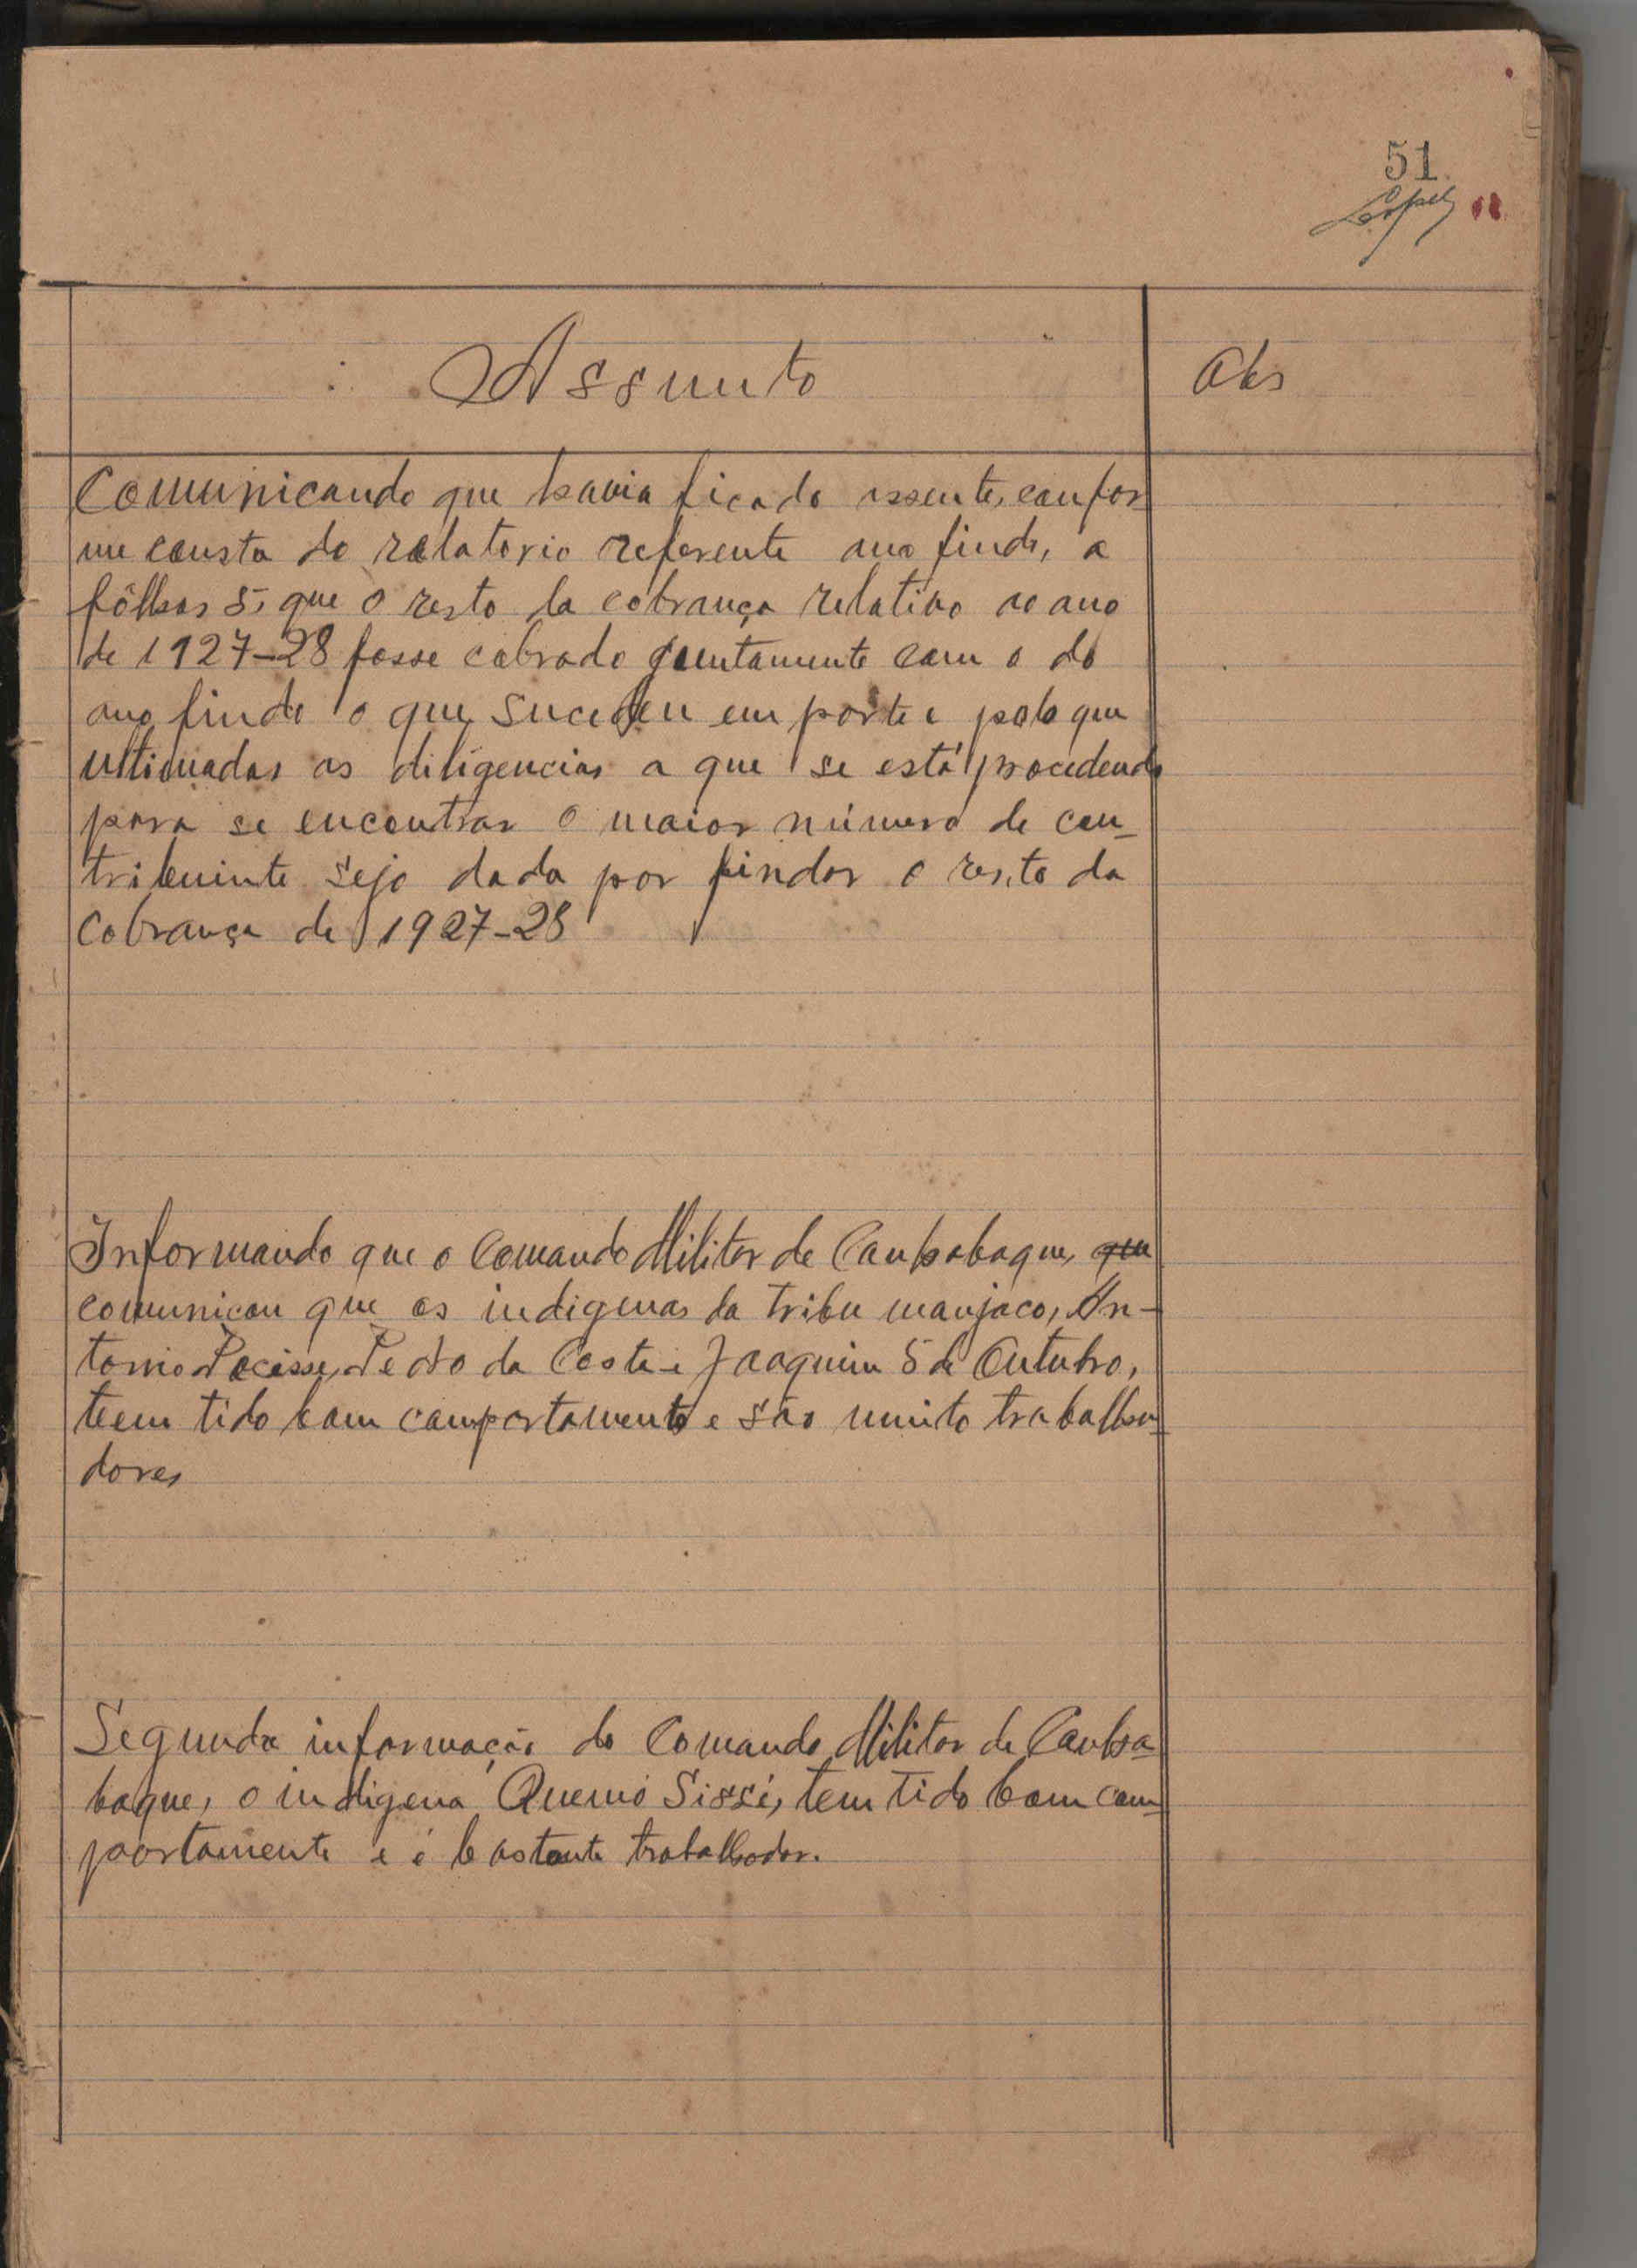 51
Lopes
Assunto
Obs
Comunicando que havia ficado assente, confor
me consta do relatorio referente ano findo, a
fôlhas 5, que o resto da cobrança relativo ao ano
de 1927-28 fosse cobrado juntamente com o do
ano findo o que sucedeu em parte e pelo que
ultimadas as diligencias a que se está procedendo
para se encontrar o maior número de con-
tribuinte seja dada por finda o resto da
cobrança de 1927-28
Informando que o Comando Militar de Canhabaque, que
comunicou que os indigenas da tribu manjaco, An-
tonio Pedro da Costa e Joaquim 5 de Outubro,
teem tido bom comportamento e são muito trabalha-
dores
Segundo informação do Comando Militar de Canha-
baque, o indigena Quemó Sissé, tem tido bom com-
portamento e é bastante trabalhador.